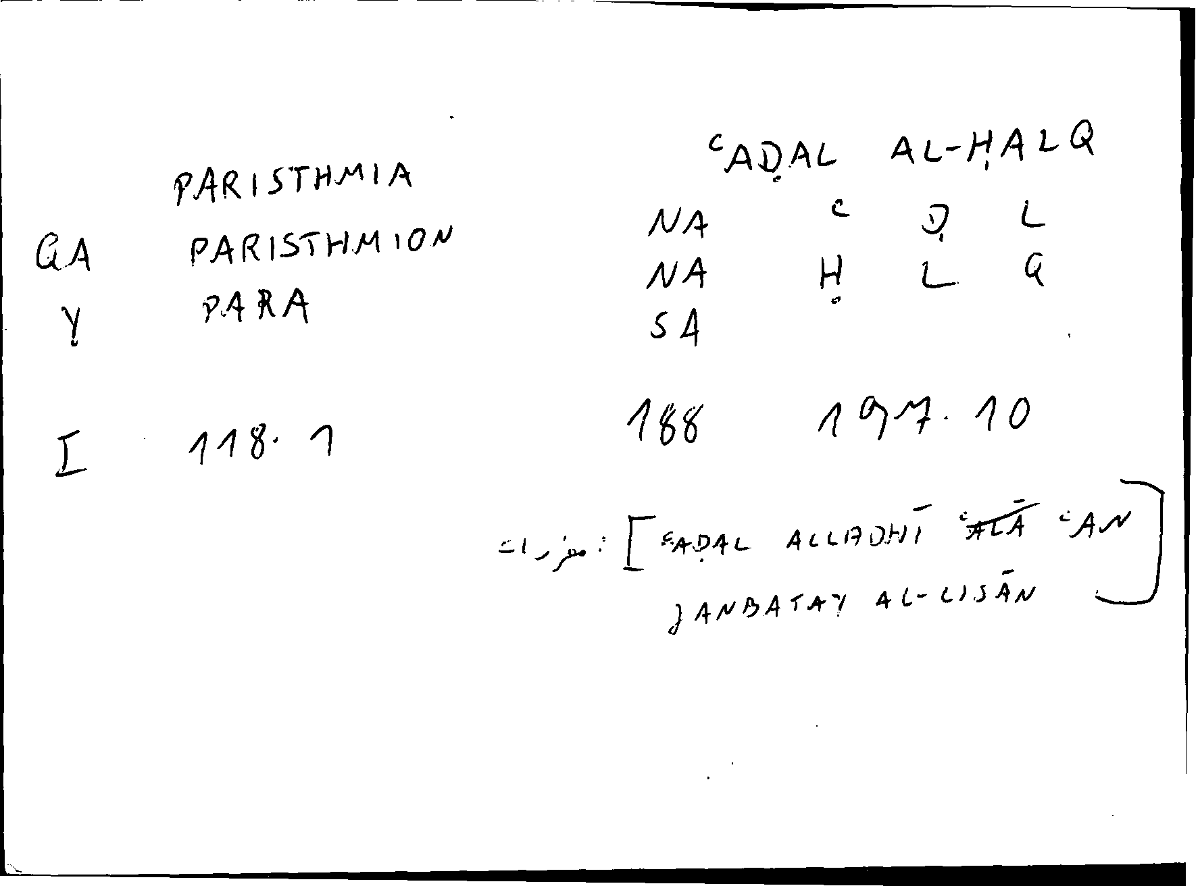 PARISTHMIA ᶜAḌAL AL-ḤALQ
QA PARISTHMION NA ᶜ Ḍ L
Y PARA NA Ḥ L Q
SA
I 118.1 188 197.10
: [ᶜAḌAL ALLADHĪ ᶜALĀ ᶜAN
JANBATAY AL-LISĀN]